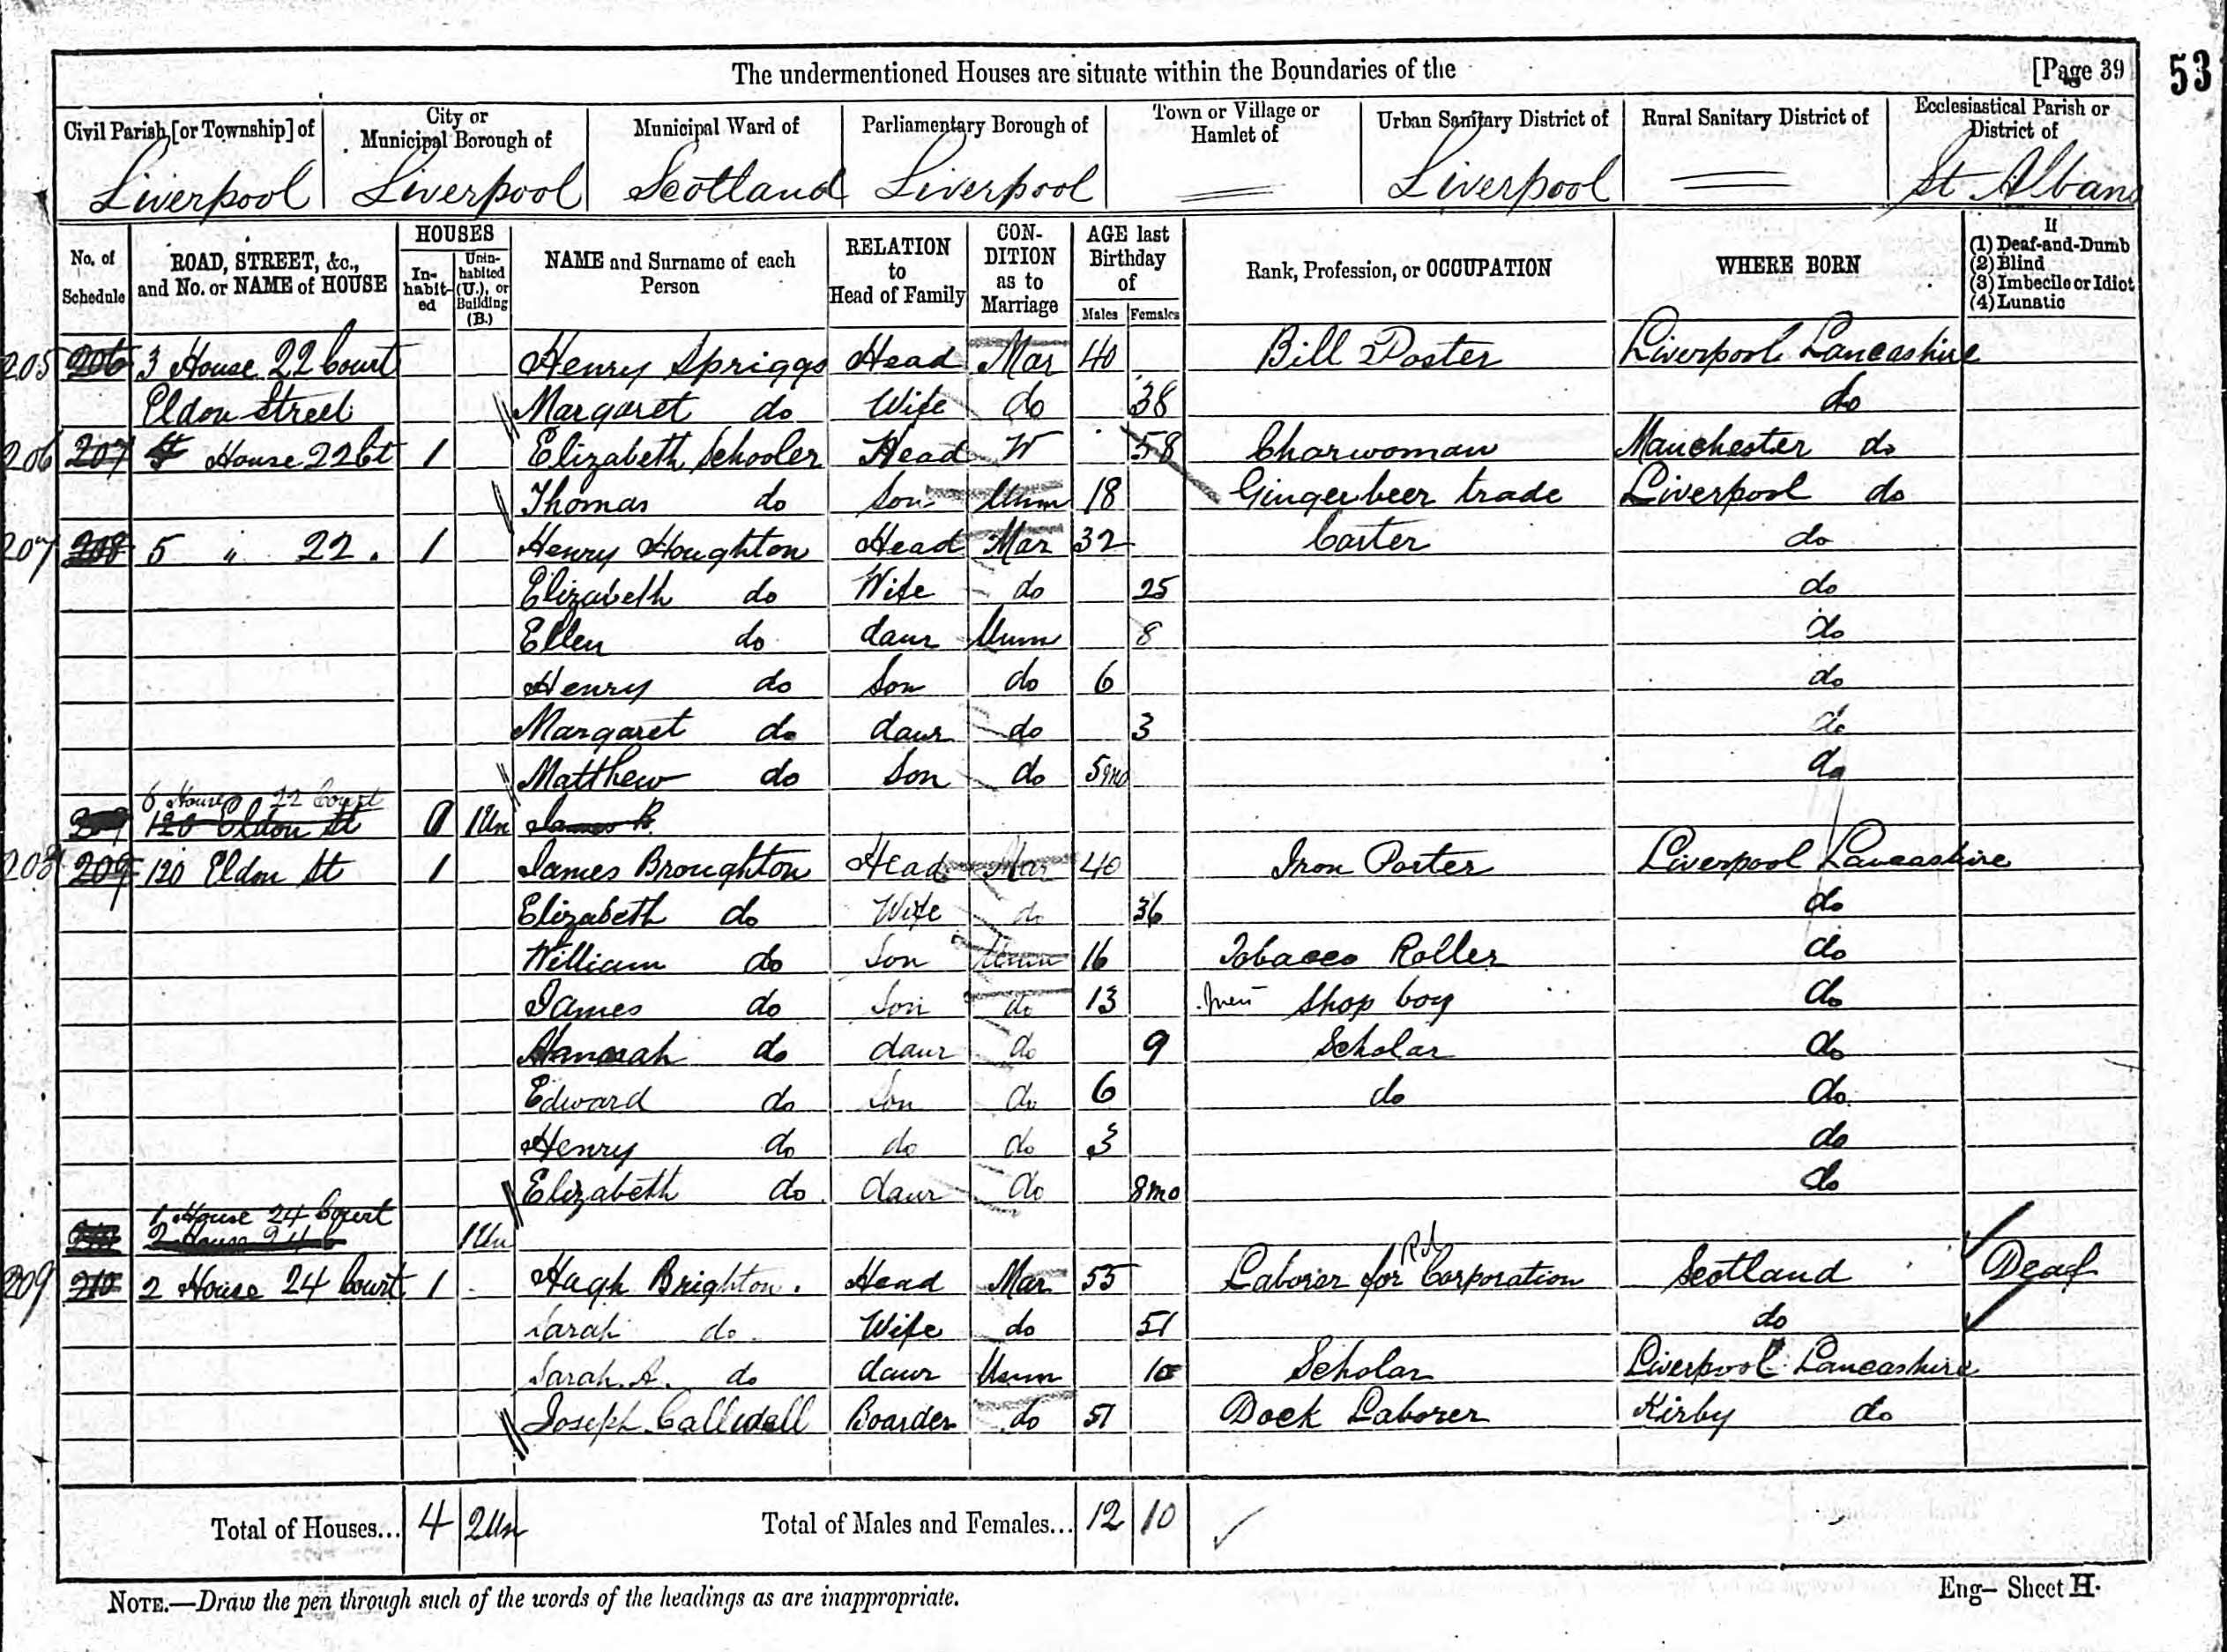 The undermentioned Houses are situate within the Boundaries of the [Page 39 53
Civil Parish [or Township] of City or Municipal Borough of Municipal Ward of Parliamentary Borough of Town or Village or Hamlet of Urban Sanitary District of Rural Sanitary District of Ecclesiastical Parish or District of
Liverpool Liverpool Scotland Liverpool Liverpool St Albans
No. of Schedule ROAD, STREET, &c., and No. or NAME of HOUSE HOUSES Inhabited Uninhabited (U.), or Building (B.) NAME and Surname of each Person RELATION to Head of Family CONDITION as to Marriage AGE last Birthday of Males Females Rank, Profession, or OCCUPATION WHERE BORN If (1) Deaf-and-Dumb (2) Blind (3) Imbecile or Idiot (4) Lunatic
205 206 3 House 22 Court Henry Spriggs Head Mar 40 Bill Poster Liverpool Lancashire
Eldon Street Margaret do Wife do 38 do
206 207 4 House 22 Ct 1 Elizabeth Schooler Head W 58 Charwoman Manchester do
Thomas do Son Unm 18 Gingerbeer trade Liverpool do
207 208 5 " 22 . 1 Henry Houghton Head Mar 32 Carter do
Elizabeth do Wife do 25 do
Ellen do daur Unm 8 do
Henry do Son do 6 do
Margaret do daur do 3 do
Matthew do Son do 5mo do
6 House 22 Court
120 Eldon St 1Un James B
208 209 120 Eldon St 1 James Broughton Head Mar 40 Iron Porter Liverpool Lancashire
Elizabeth do Wife do 36 do
William do Son Unm 16 Tobacco Roller do
James do Son do 13 shop boy do
Hannah do daur do 9 Scholar do
Edward do Son do 6 do do
Henry do do do 3 do
Elizabeth do daur do 8mo do
1 House 24 Court
2 House 24 C 1Un
209 210 2 House 24 Court 1 Hugh Brighton. Head Mar 55 Laborer for Corporation Scotland Deaf
Sarah do Wife do 51 do
Sarah A. do daur Unm 10 Scholar Liverpool Lancashire
Joseph Calliwell Boarder do 51 Dock Laborer Kirby do
Total of Houses... 4 2Un Total of Males and Females... 12 10
NOTE.—Draw the pen through such of the words of the headings as are inappropriate. Eng— Sheet H.